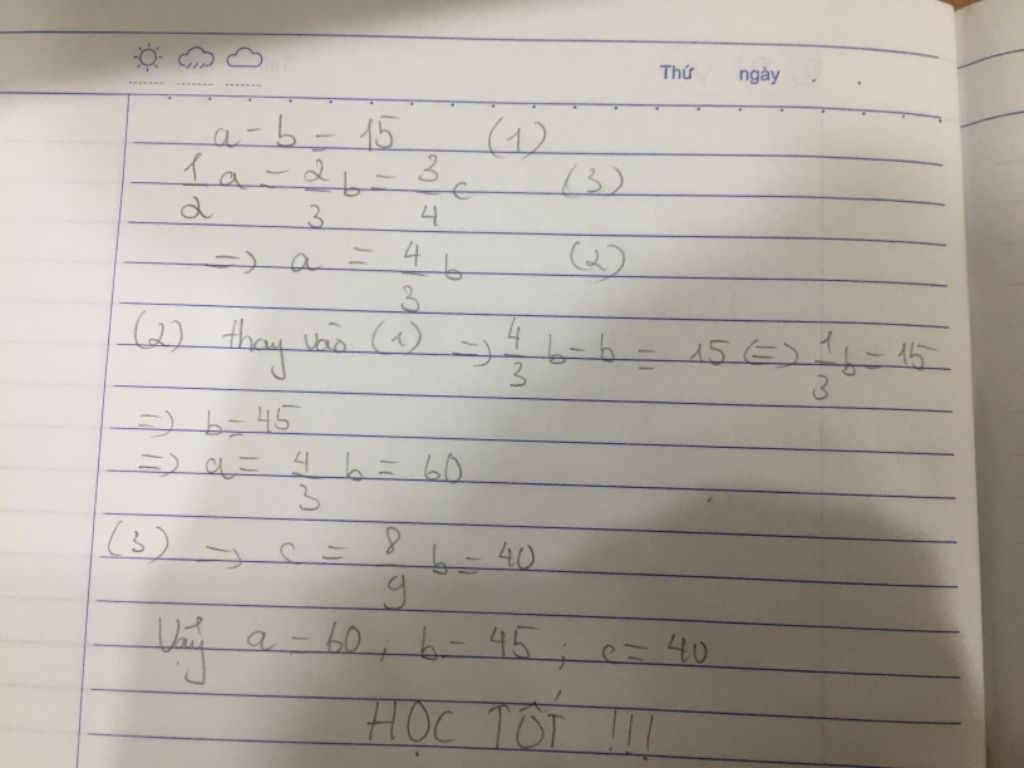 Thứ ngày
a - b = 15 (1)
1/2 a = 2/3 b = 3/4 c (3)
=> a = 4/3 b (2)
(2) thay vào (1) => 4/3 b - b = 15 (=) 1/3 b = 15
=> b = 45
=> a = 4/3 b = 60
(3) => c = 8/9 b = 40
Vậy a = 60 ; b = 45 ; c = 40
HỌC TỐT !!!